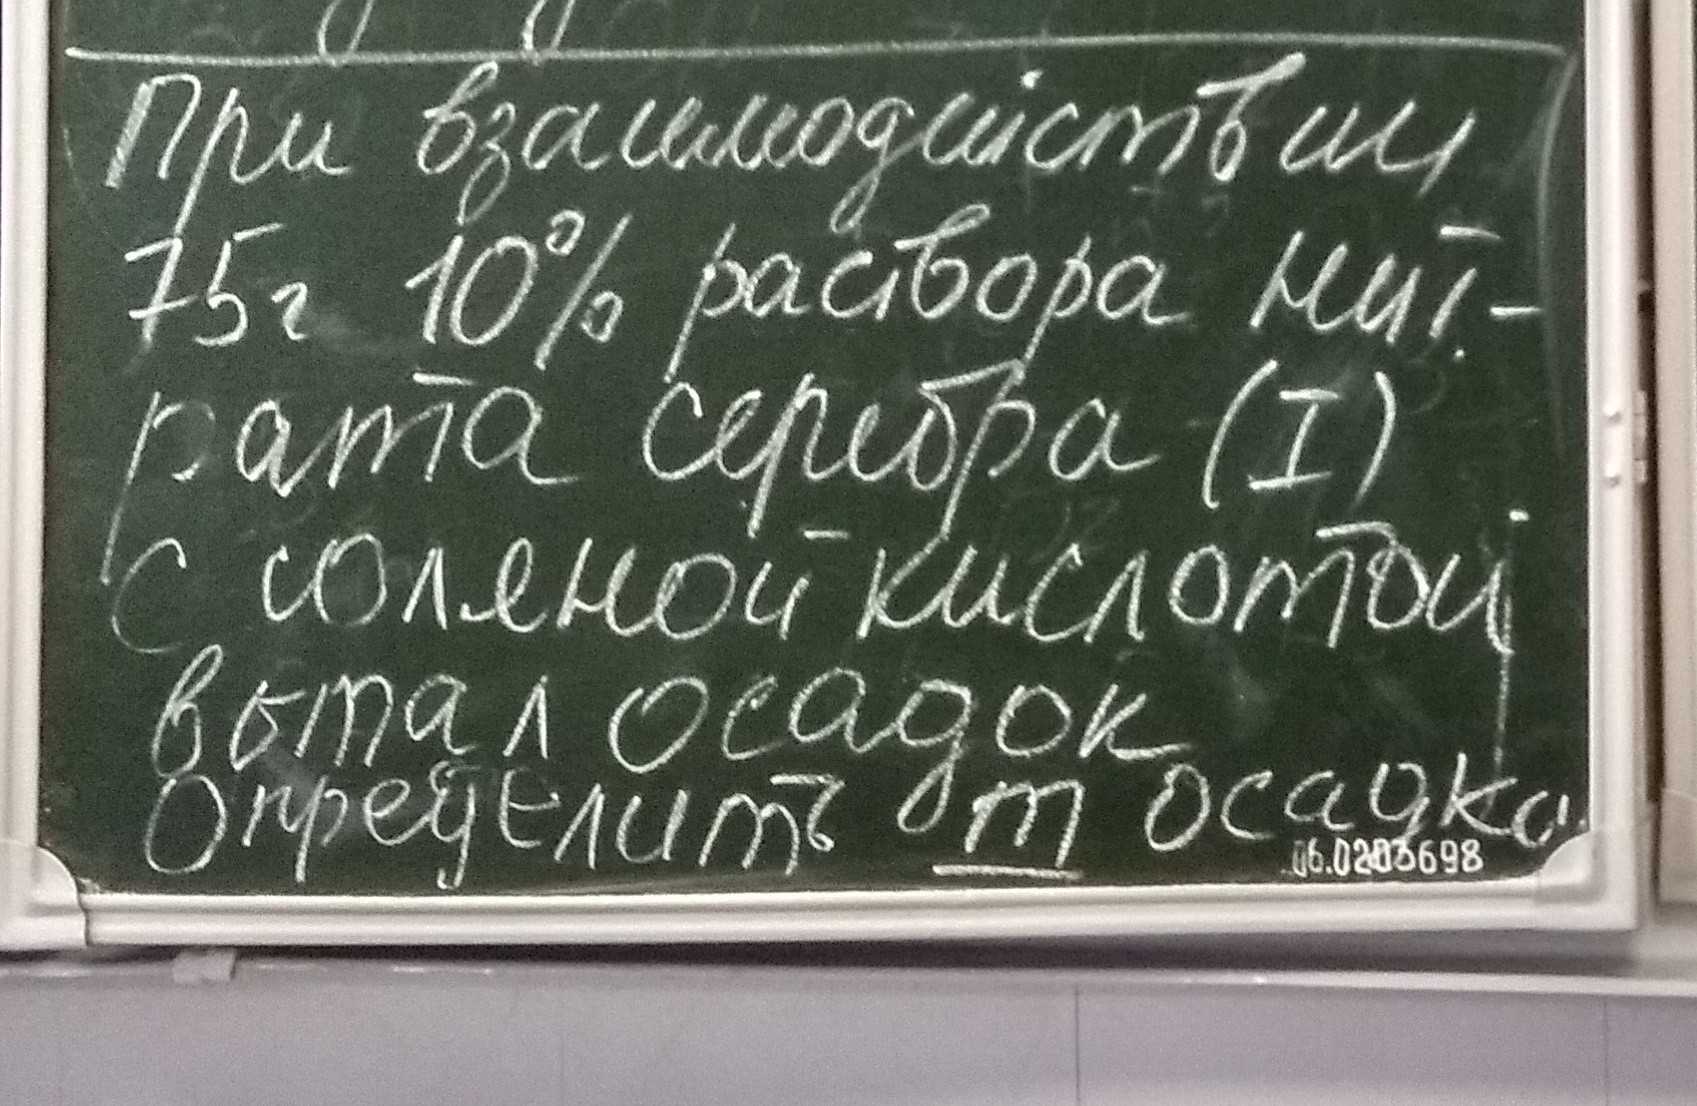 При взаимодействии
75г 10% раствора нит-
рата серебра (I)
с соляной кислотой
выпал осадок
Определить m осадка.
06.0203698